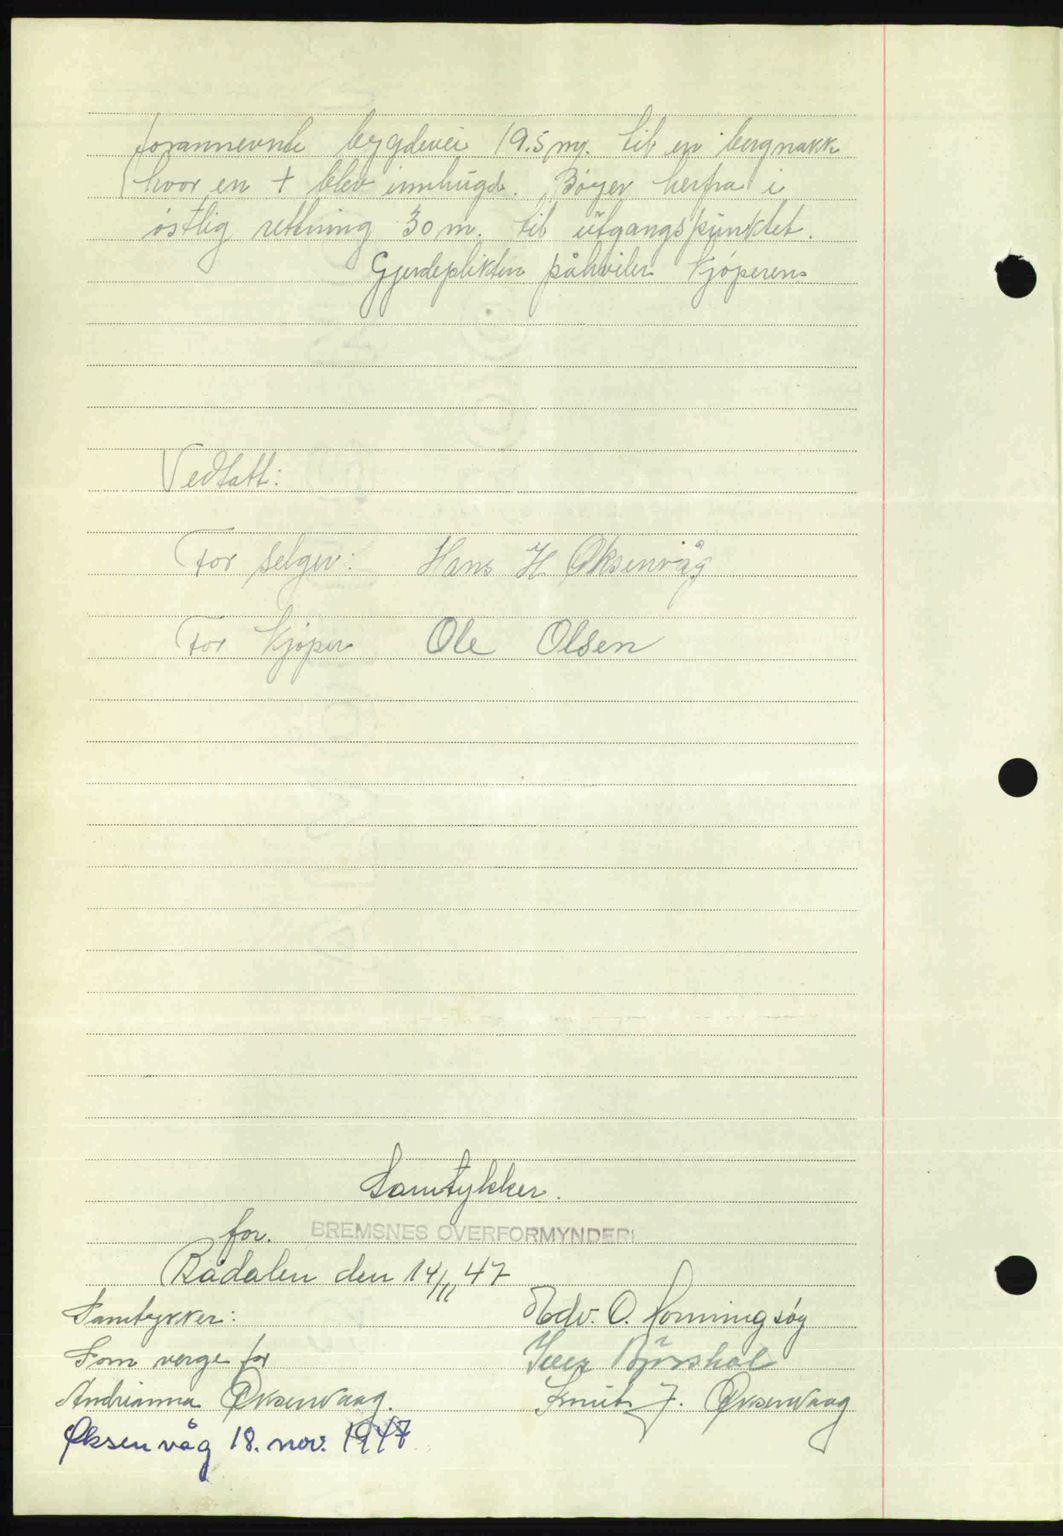 forannevnte bygdevei 19.5 m. til en bergnakk
hvor en + blev innhugd. Bøyer herfra i
østlig retning 30 m. til utgangspunktet.
Gjerdeplikten påhviler kjøperen.
Vedtatt:
For selger: Hans H. Oksenvåg
For kjøper Ole Olsen
Samtykker.
for. BREMSNES OVERFORMYNDERI
Rådalen den 14/11 47
Samtykker: Edv. O. Honningsøy
Som verge for Iver
Andrianna Øksenvaag. Knut J. Øksenvaag
Øksenvåg 18. nov. 1947